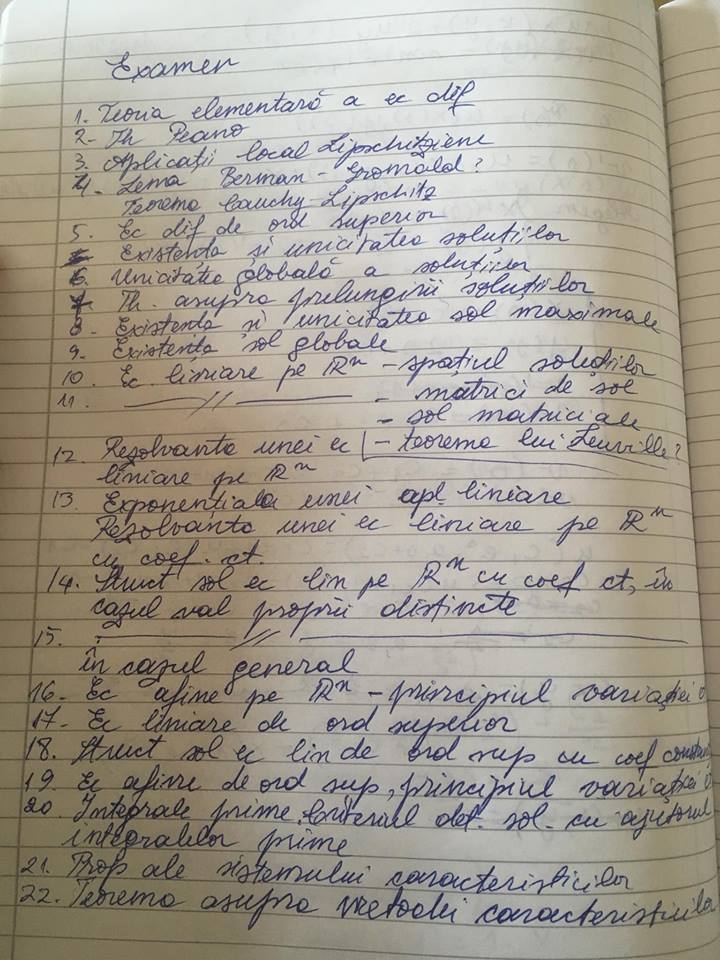 Examen
1. Teoria elementară a ec dif
2. Th Peano
3. Aplicații local Lipschitziene
4. Lema Berman - Gromald?
Teorema Cauchy-Lipschitz
5. Ec dif de ord superior
Existența și unicitatea soluțiilor
6. Unicitatea globală a soluțiilor
7. Th. asupra prelungirii soluțiilor
8. Existența și unicitatea sol maximale
9. Existența sol globale
10. Ec. liniare pe ℝⁿ - spațiul soluțiilor
11. —— // —— - matrici de sol
- sol matriciale
12. Rezolvanta unei ec - teorema lui Leuville?
liniare pe ℝⁿ
13. Exponențiala unei apl liniare
Rezolvanta unei ec liniare pe ℝⁿ
cu coef. ct.
14. Struct sol ec lin pe ℝⁿ cu coef ct, în
cazul val proprii distincte
15. —— // ——
în cazul general
16. Ec afine pe ℝⁿ - principiul variației
17. Ec liniare de ord superior
18. Struct sol ec lin de ord sup cu coef constanți
19. Ec afine de ord sup, principiul variației
20. Integrale prime. Criteriul def. sol. cu ajutorul
integralelor prime
21. Prop ale sistemului caracteristicilor
22. Teorema asupra metodei caracteristicilor